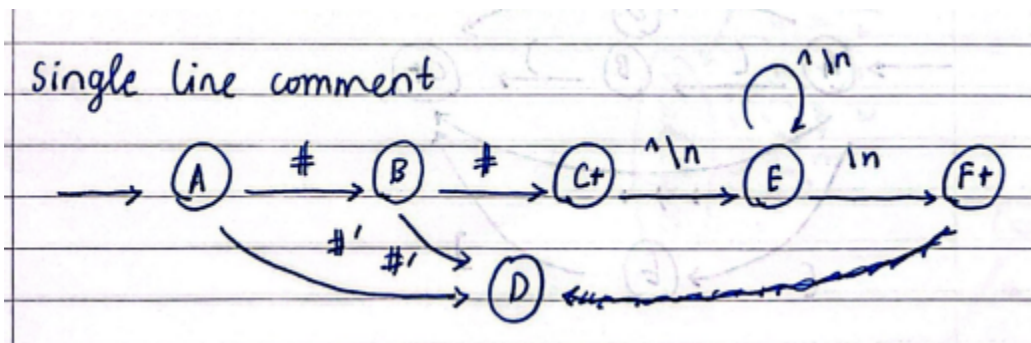 single line comment
^\n
A # B # C+ ^\n E \n F+
#' #' D